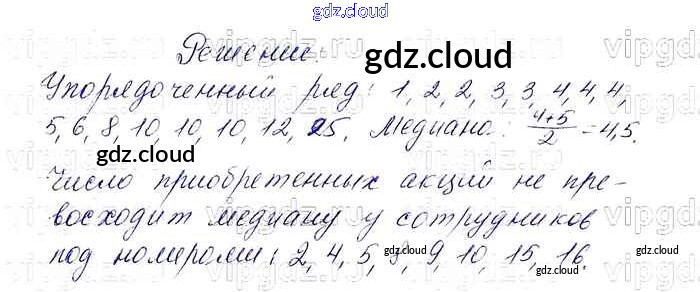 gdz.cloud
Решение.
gdz.cloud
Упорядоченный ряд: 1, 2, 2, 3, 3, 4, 4, 4,
5, 6, 8, 10, 10, 10, 12, 25. Медиана: \frac{4+5}{2} = 4,5.
gdz.cloud
Число приобретенных акций не пре-
восходит медиану у сотрудников
gdz.cloud
под номерами: 2, 4, 5, 9, 10, 15, 16.
gdz.cloud
gdz.cloud